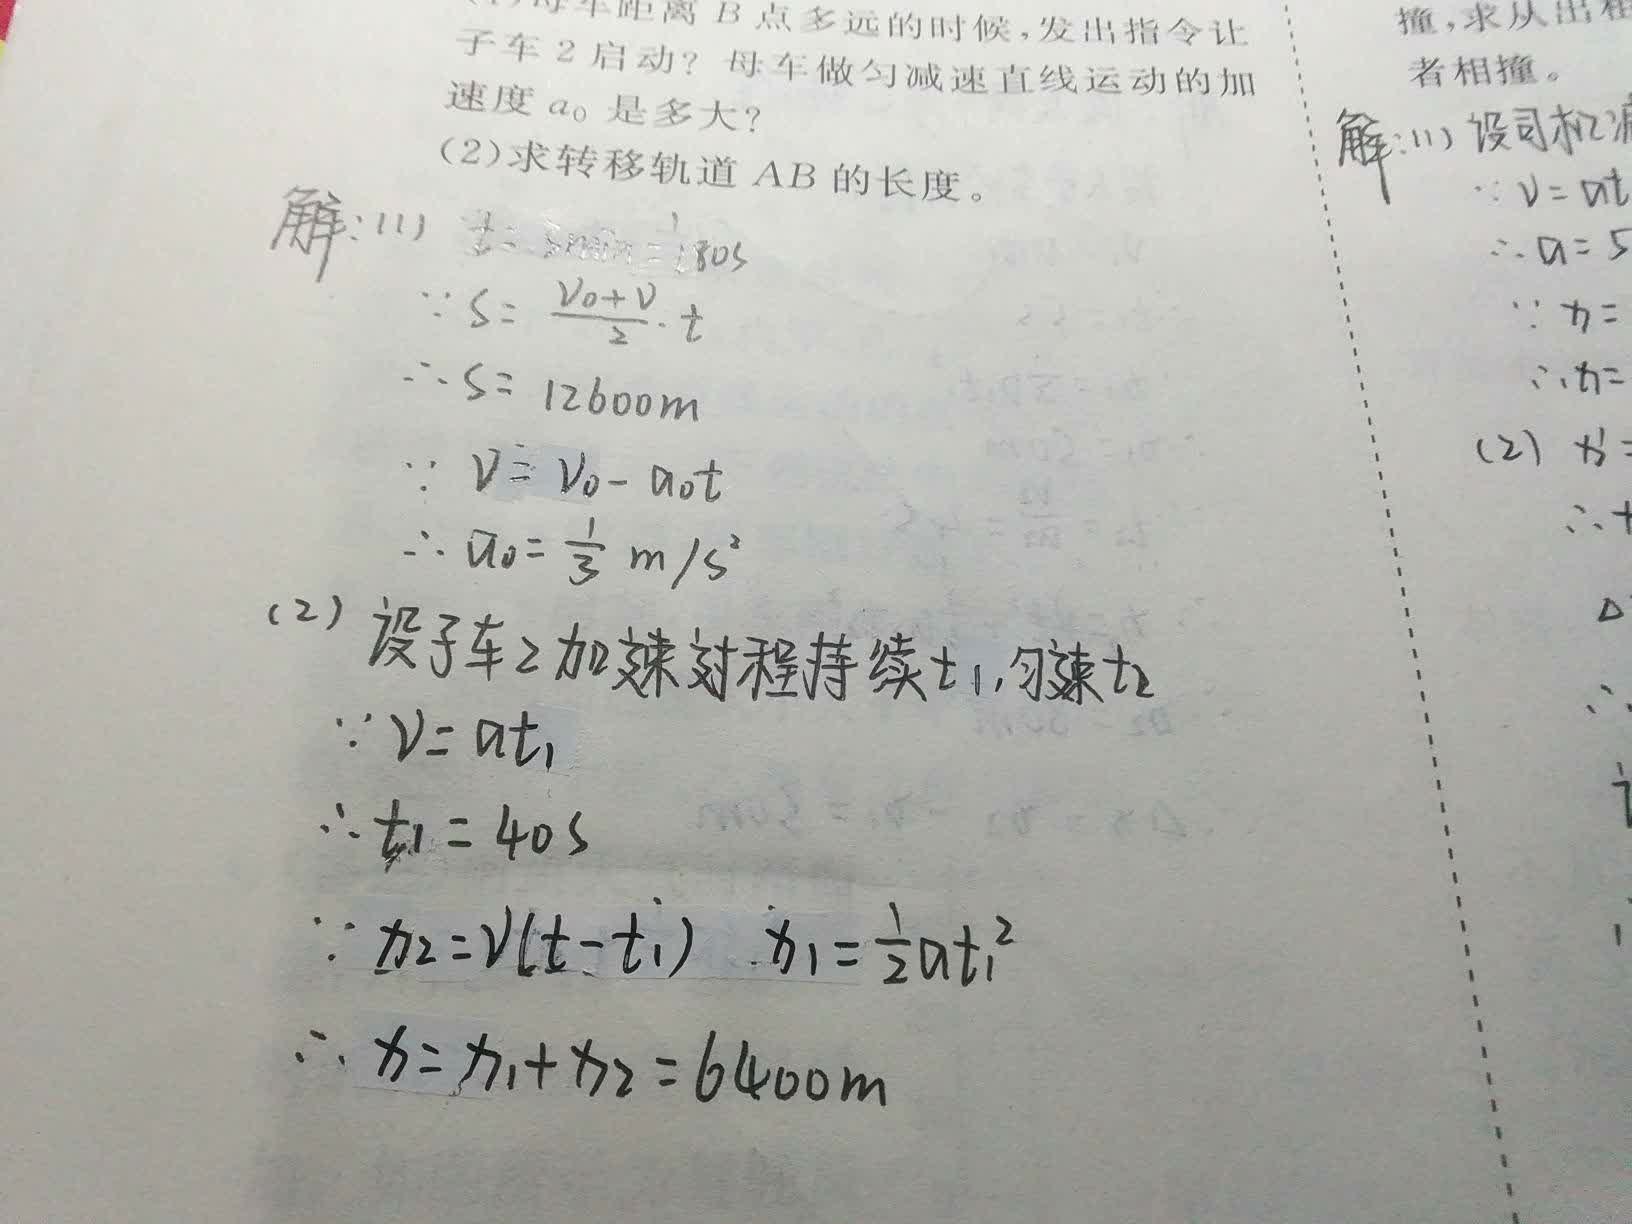 母车距离B点多远的时候,发出指令让
子车2启动?母车做匀减速直线运动的加
速度a₀是多大?
(2)求转移轨道AB的长度。
解:(1) t=3min=180s
∵S=\frac{V₀+V}{2}·t
∴S=12600m
∵V=V₀-a₀t
∴a₀=\frac{1}{3} m/s²
(2)设子车2加速过程持续t₁,匀速t₂
∵V=at₁
∴t₁=40s
∵x₂=V(t-t₁) x₁=\frac{1}{2}at₁²
∴x=x₁+x₂=6400m
撞,求从出
者相撞。
解:(1)设司机
∵V=at
∴a=5
∵x=
∴x=
(2)